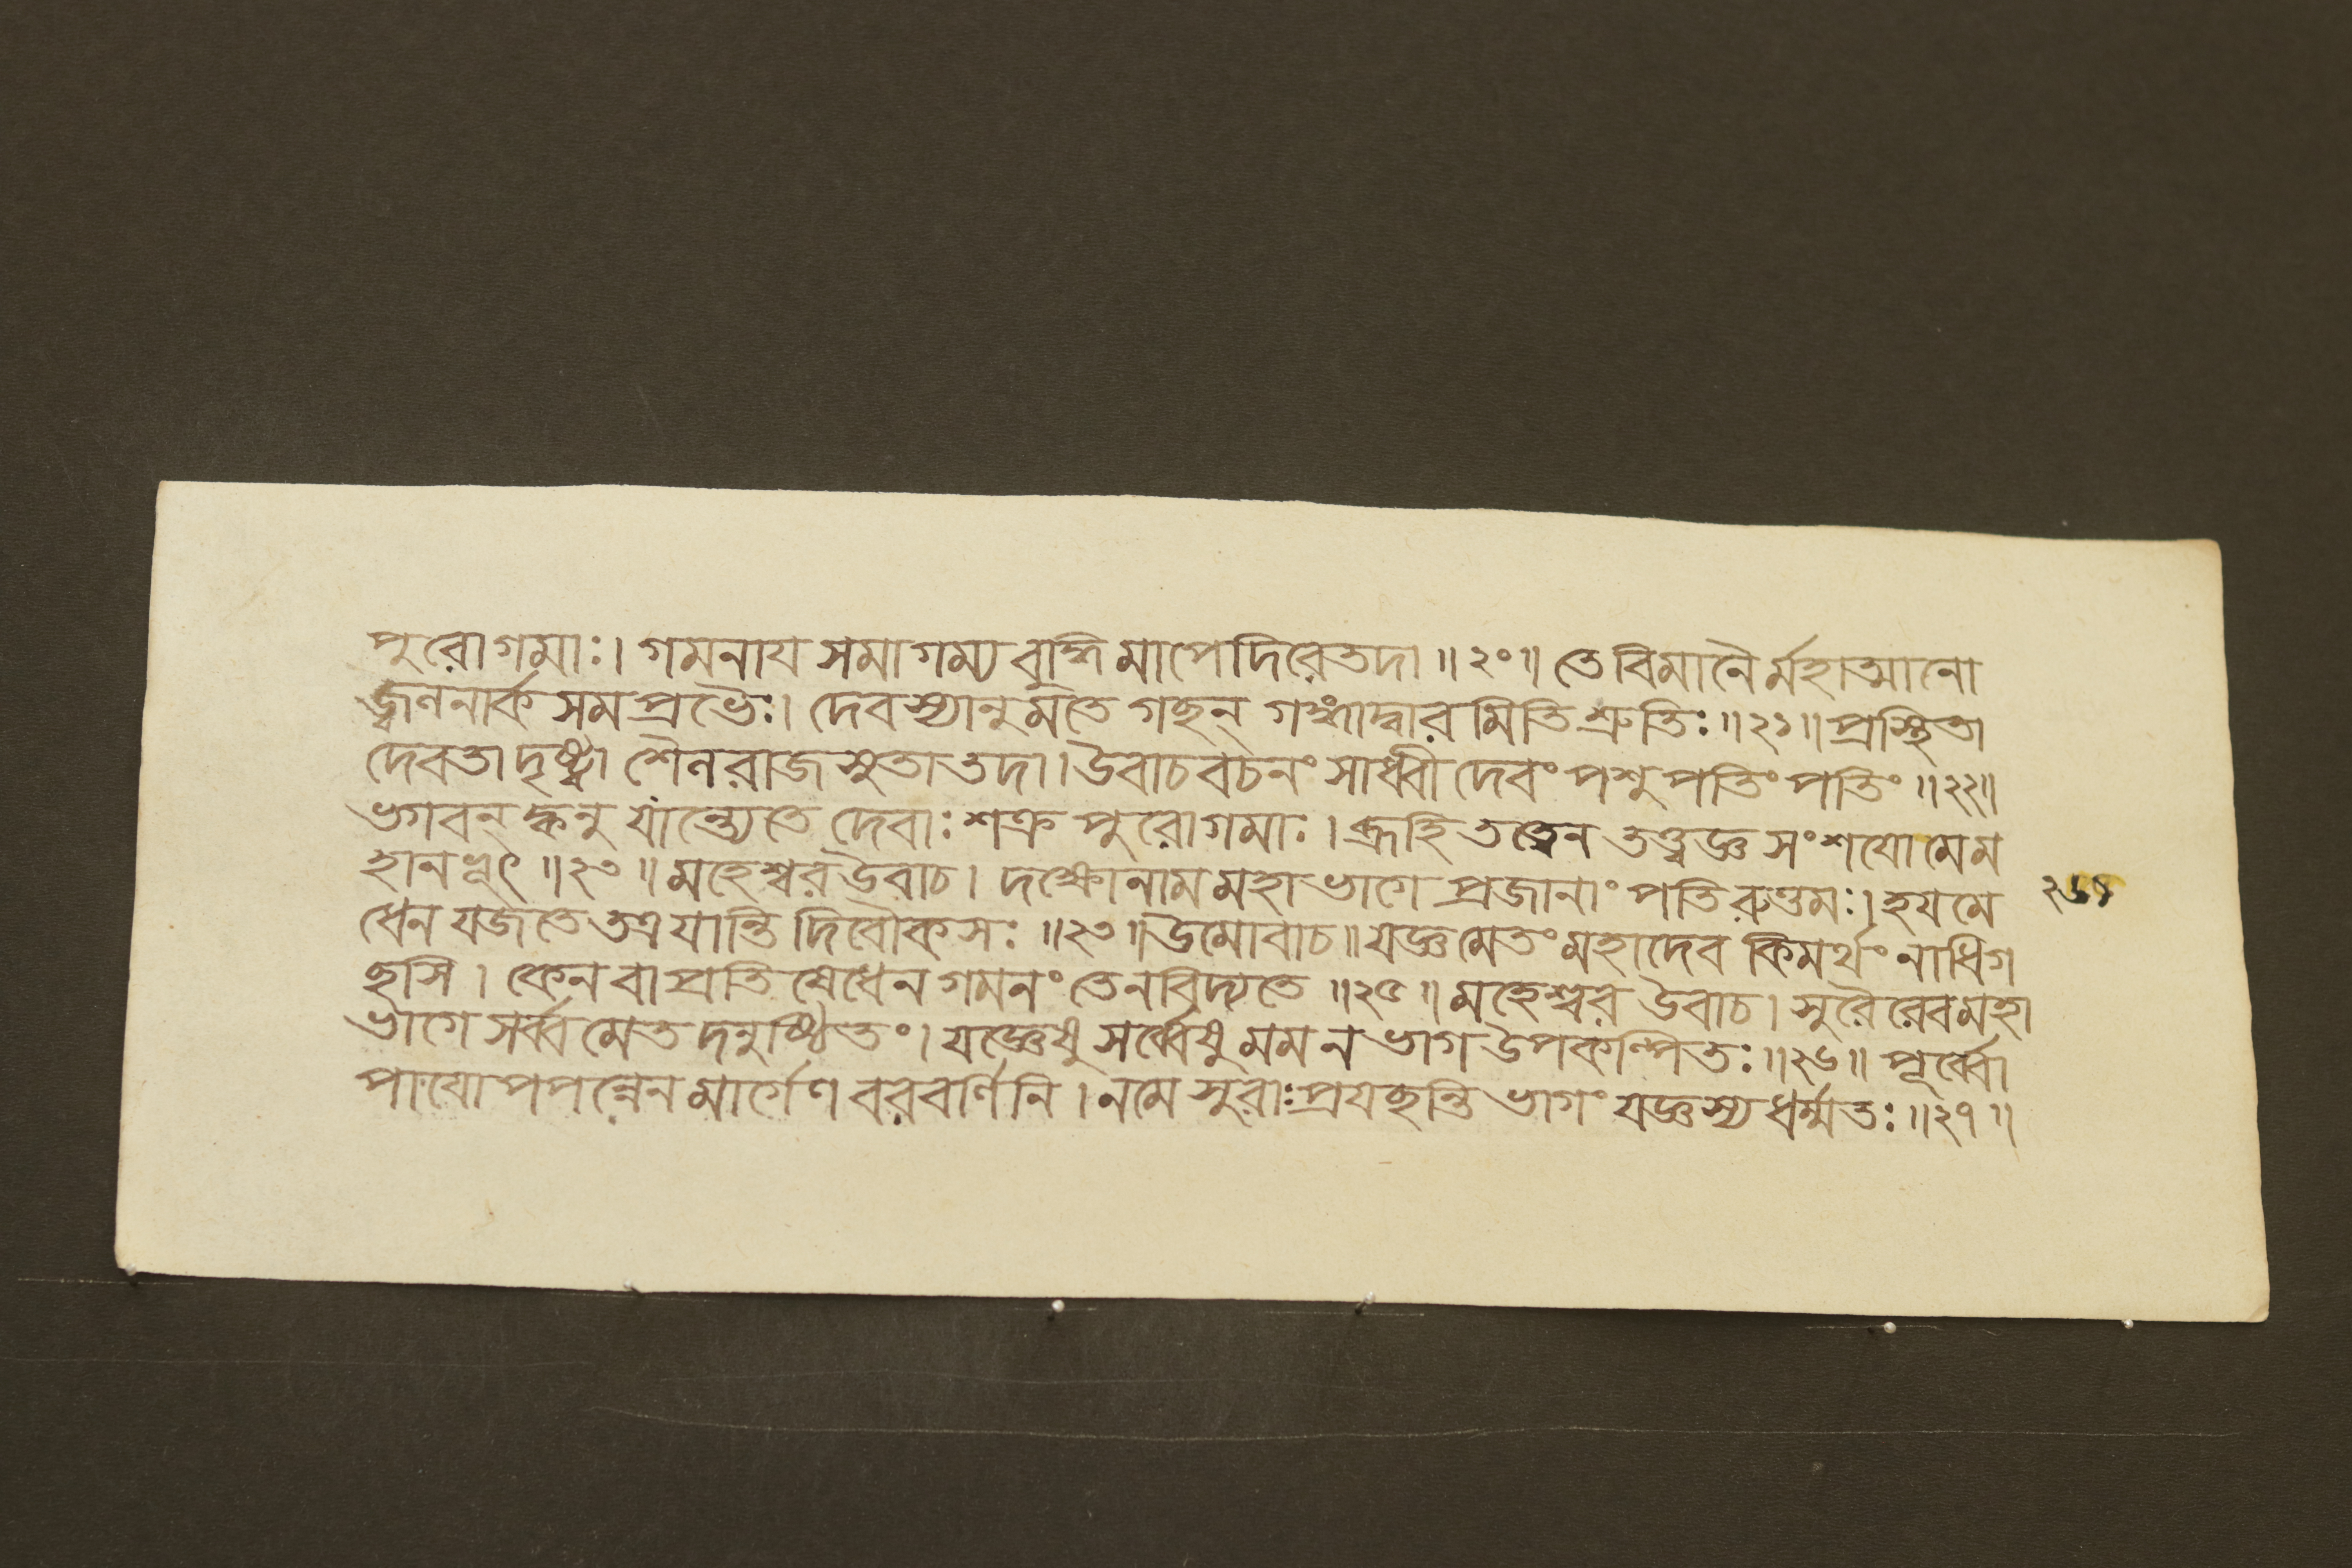 পুরোগমাঃ। গমনায সমাগম্য বুদ্ধিমাপেদিরেতদা॥২০॥ তে বিমানৈর্মহাত্মানো
জ্জ্বলনার্কসমপ্রভৈঃ। দেবস্যানুমতে গছন্ গঙ্গাদ্বারমিতি শ্রুতিঃ॥২১॥ প্রস্থিতা
দেবতা দৃষ্ট্বা শৈলরাজসুতা তদা। উবাচ বচনং সাধ্বী দেবং পশুপতিং পতিং॥২২॥
ভগবন্ ক্বনু যান্ত্যেতে দেবাঃ শক্রপুরোগমাঃ। ব্রূহি তত্ত্বেন তত্ত্বজ্ঞ সংশযো মে ম
হানভূৎ॥২৩॥ মহেশ্বর উবাচ। দক্ষোনাম মহাভাগে প্রজানাং পতিরুত্তমঃ। হযমে
ধেন যজতে তত্র যান্তি দিবৌকসঃ॥২৩॥ উমোবাচ॥ যজ্ঞমেতং মহাদেব কিমর্থং নাধিগ
ছসি। কেন বা প্রতিষেধেন গমনং তেনবিদ্যতে॥২৫॥ মহেশ্বর উবাচ। সুরৈরেব মহা
ভাগে সর্ব্বমেতদনুষ্ঠিতং। যজ্ঞেষু সর্ব্বেষু মম ন ভাগ উপকল্পিতঃ॥২৬॥ পূর্ব্বো
পাযোপপন্নেন মার্গেণ বরবর্ণিনি। নমে সুরাঃ প্রযছন্তি ভাগং যজ্ঞস্য ধর্ম্মতঃ॥২৭॥